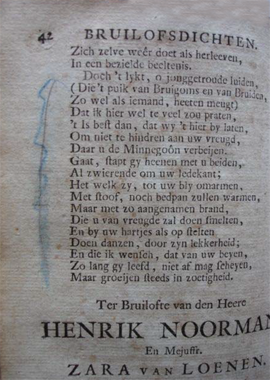 42 BRUILOFSDICHTEN.
Zich zelve wéêr doet als herleeven,
In een bezielde beeltenis.
Doch 't lykt, o jonggetroude luiden,
(Die 't puik van Bruigoms en van Bruiden,
Zo wel als iemand, heeten meugt)
Dat ik hier wel te veel zou praten,
't Is best dan, dat wy 't hier by laten,
Om niet te hindren aan uw vreugd,
Daar u de Minnegoôn verbeijen.
Gaat, stapt gy heenen met u beiden,
Al zwierende om uw ledekant;
Het welk zy, tot uw bly omarmen,
Met stoof, noch bedpan zullen warmen,
Maar met zo aangenamen brand,
Die u van vreugde zal doen smelten,
En by uw hartjes als op stelten
Doen danzen, door zyn lekkerheid;
En die ik wensch, dat van uw beyen,
Zo lang gy leefd, niet af mag scheyen,
Maar groeijen steeds in zoetigheid.
Ter Bruilofte van den Heere
HENRIK NOORMAN
En Mejuffr.
ZARA VAN LOENEN.